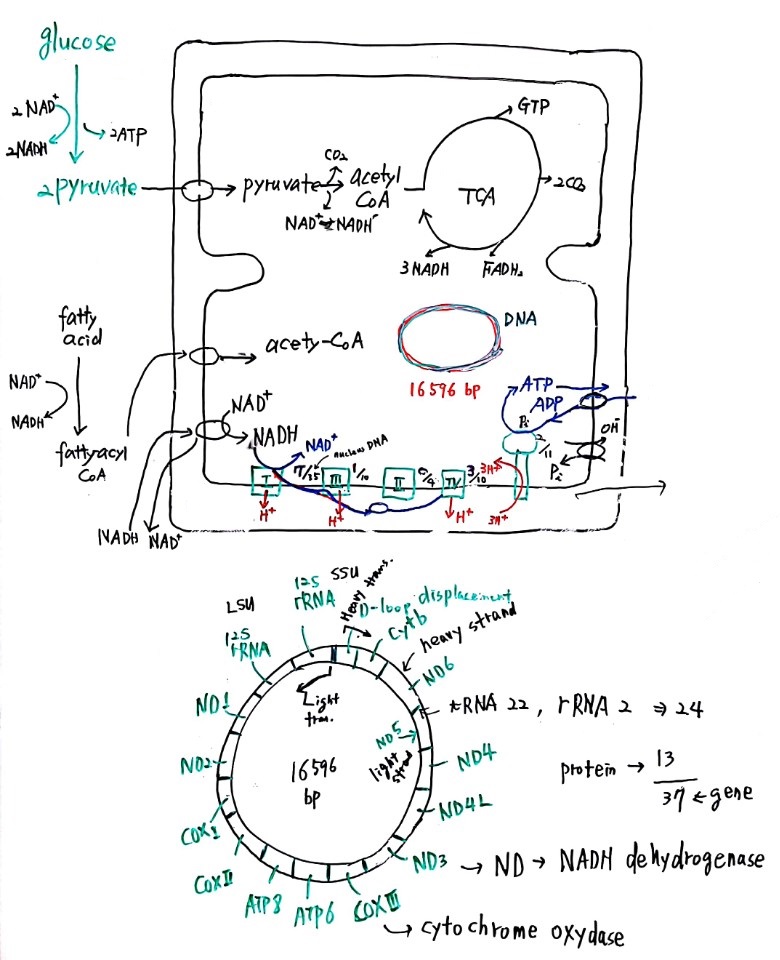 glucose
2 NAD⁺
2NADH
2ATP
2pyruvate
pyruvate
CO₂
acetyl
CoA
NAD⁺
NADH
TCA
GTP
2CO₂
3 NADH
FADH₂
fatty
acid
NAD⁺
NADH
fattyacyl
CoA
NADH
NAD⁺
acety-CoA
NAD⁺
NADH
NAD⁺
nucleus DNA
DNA
16596 bp
ATP
ADP
Pi
2/11
OH⁻
Pi
I
III
1/10
II
0/4
IV
3/10
3H⁺
H⁺
H⁺
H⁺
3H⁺
12S
rRNA
SSU
Heavy trans.
D-loop displacement
Cytb
heavy strand
LSU
12S
rRNA
Light
tran.
ND6
ND1
ND5
light
strand
tRNA 22, rRNA 2 ⇒ 24
ND2
16596
bp
ND4
protein → 13
37 ← gene
ND4L
COX I
COX II
ATP8
ATP6
COX III
ND3 → ND → NADH dehydrogenase
→ cytochrome oxydase